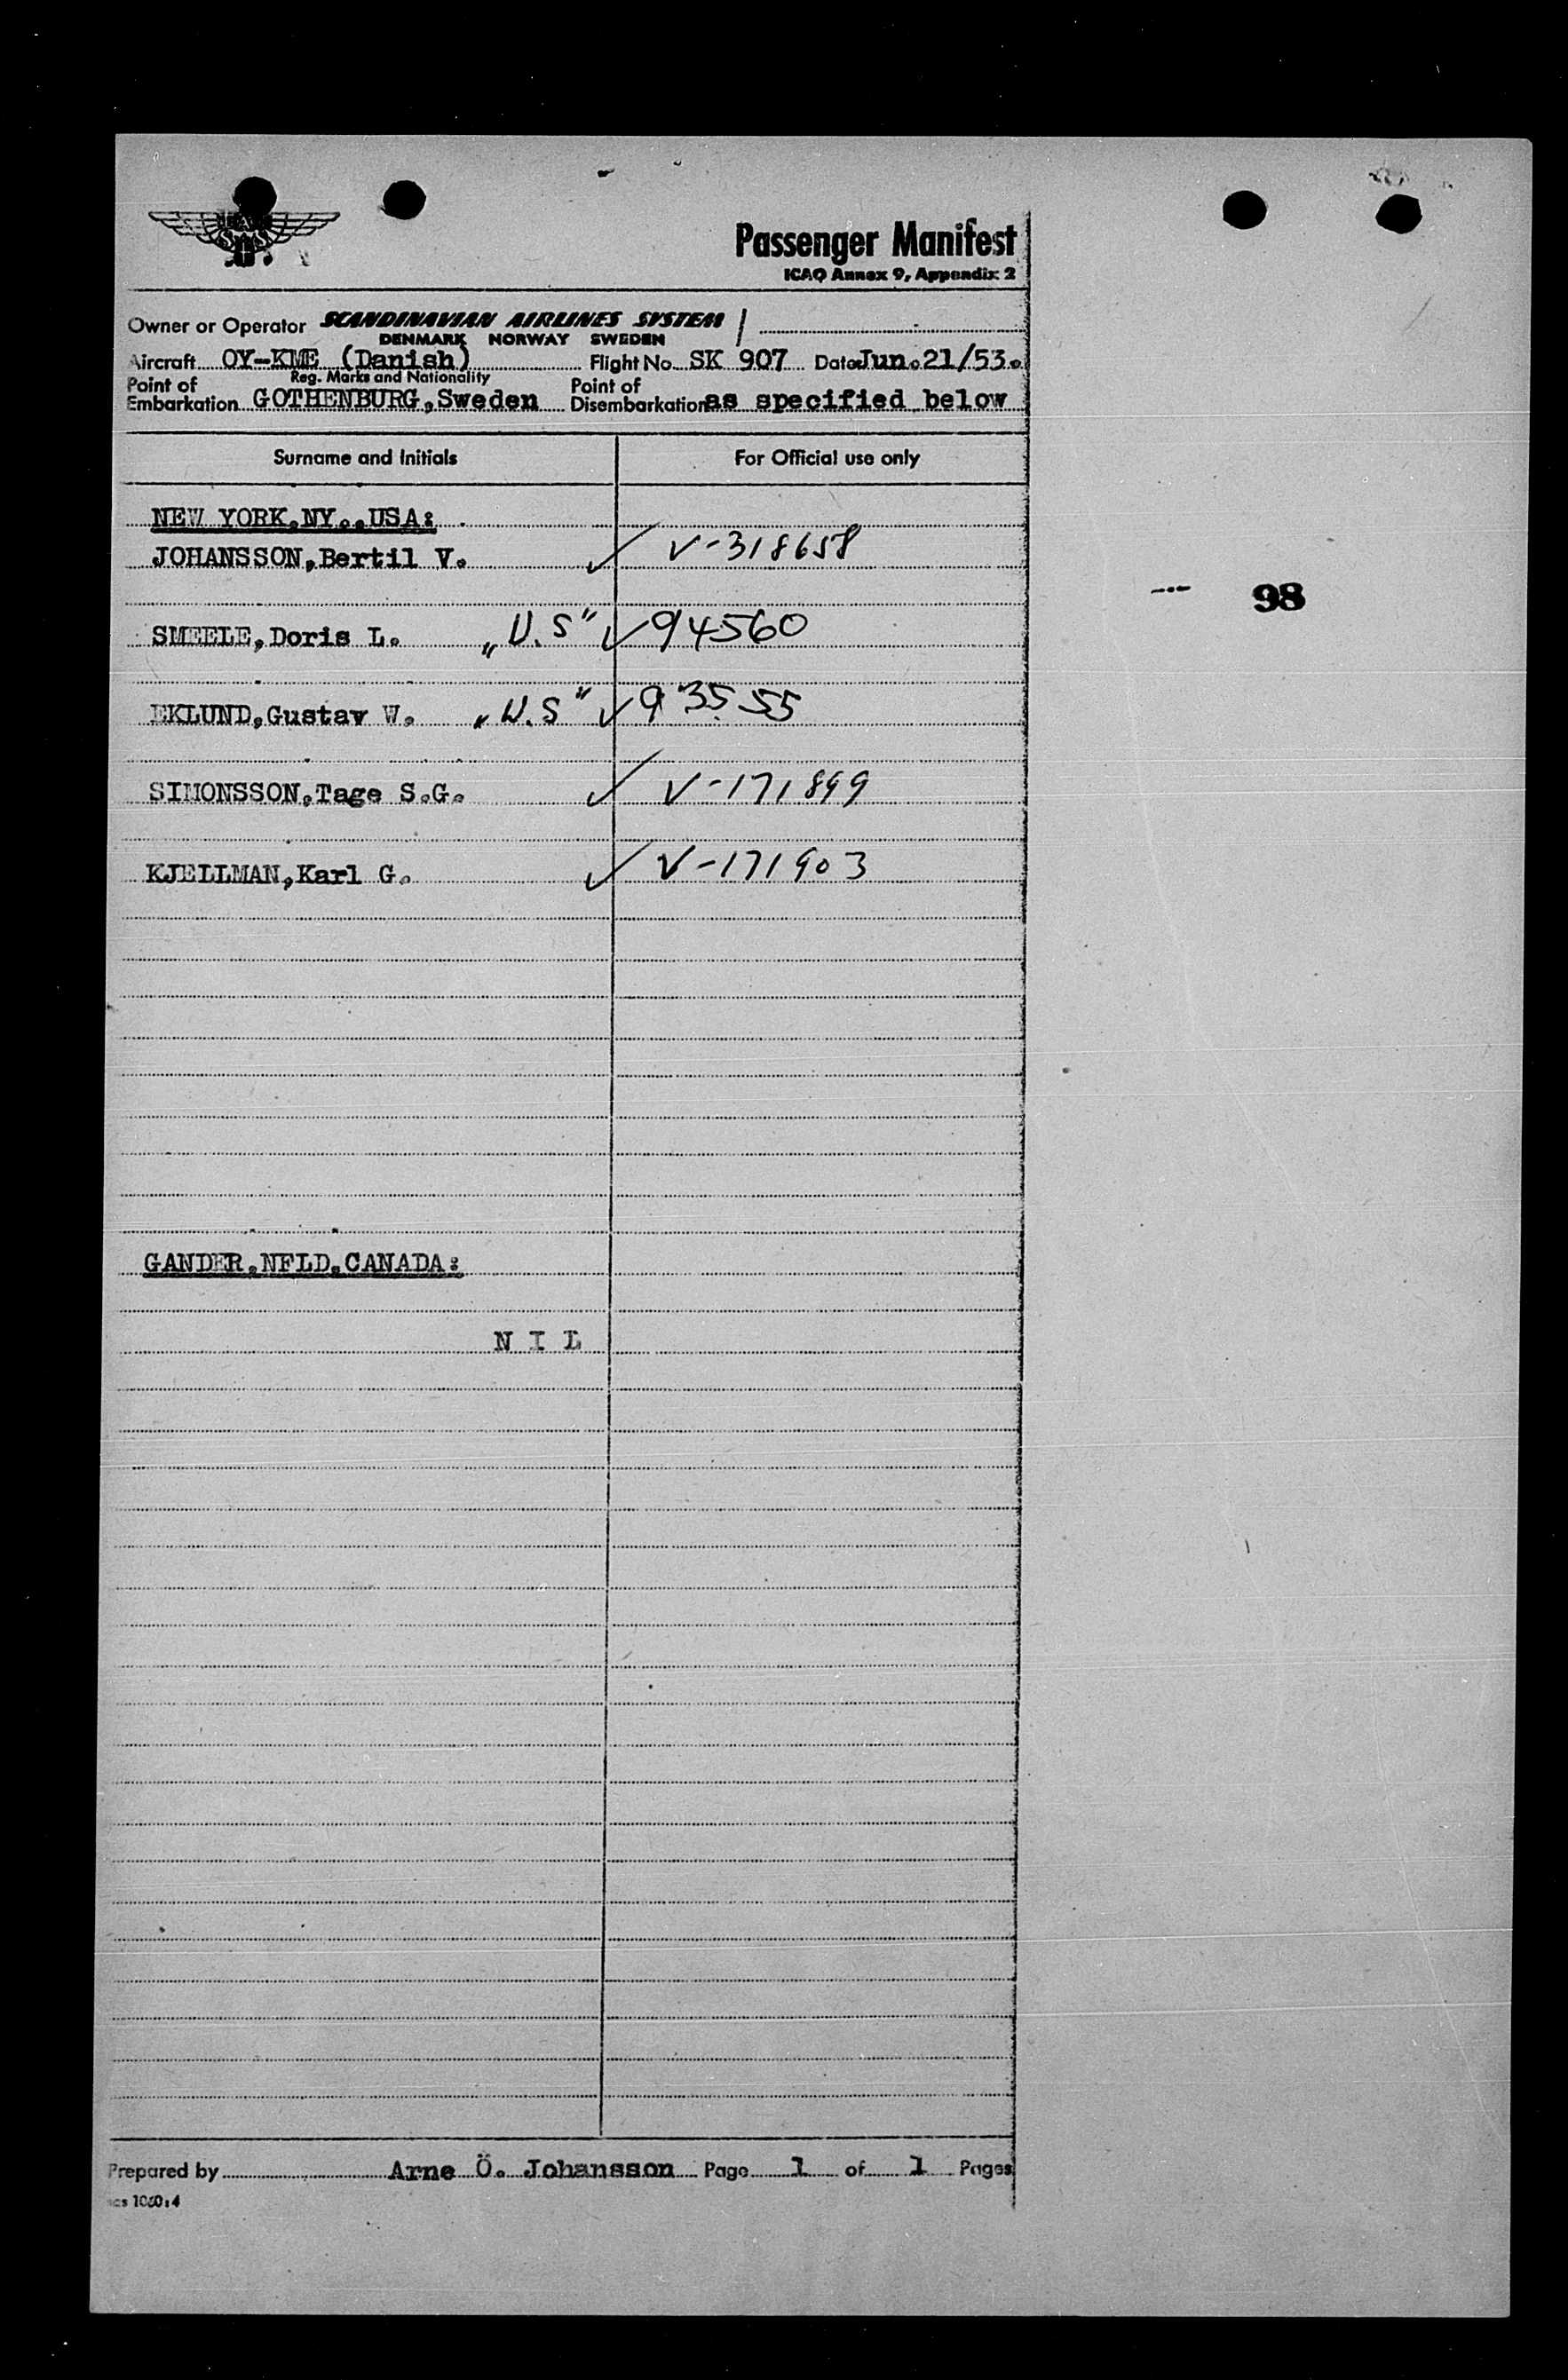 Passenger Manifest
ICAO Annex 9, Appendix 2
Owner or Operator SCANDINAVIAN AIRLINES SYSTEM
DENMARK NORWAY SWEDEN
Aircraft OY-KME (Danish) Flight No. SK 907 Date Jun.21/53.
Reg. Marks and Nationality
Point of Embarkation GOTHENBURG,Sweden Point of Disembarkation as specified below
Surname and Initials For Official use only
NEW YORK,NY.,USA:
JOHANSSON,Bertil V. ✓ V-318658
98
SMEELE,Doris L. „U.S" ✓ 94560
EKLUND,Gustav W. „U.S" ✓ 93555
SIMONSSON,Tage S.G. ✓ V-171899
KJELLMAN,Karl G. ✓ V-171903
GANDER,NFLD,CANADA:
N I L
Prepared by Arne Ö. Johansson Page 1 of 1 Pages